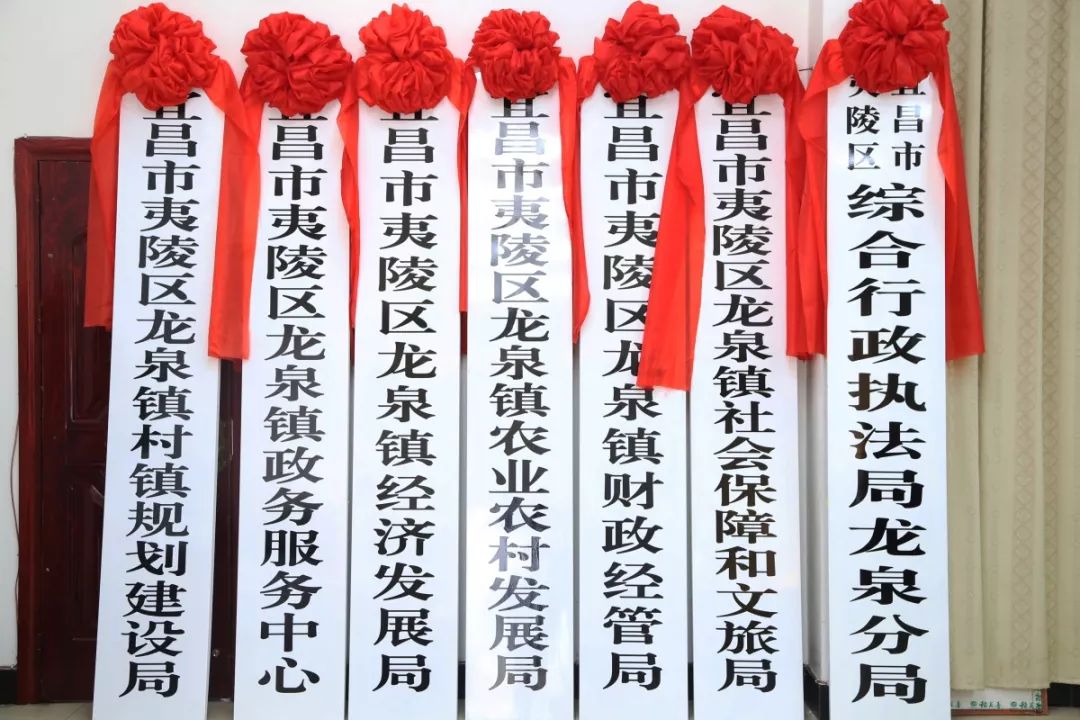 宜昌市夷陵区龙泉镇村镇规划建设局
宜昌市夷陵区龙泉镇政务服务中心
宜昌市夷陵区龙泉镇经济发展局
宜昌市夷陵区龙泉镇农业农村发展局
宜昌市夷陵区龙泉镇财政经管局
宜昌市夷陵区龙泉镇社会保障和文旅局
宜昌市
夷陵区
综合行政执法局龙泉分局